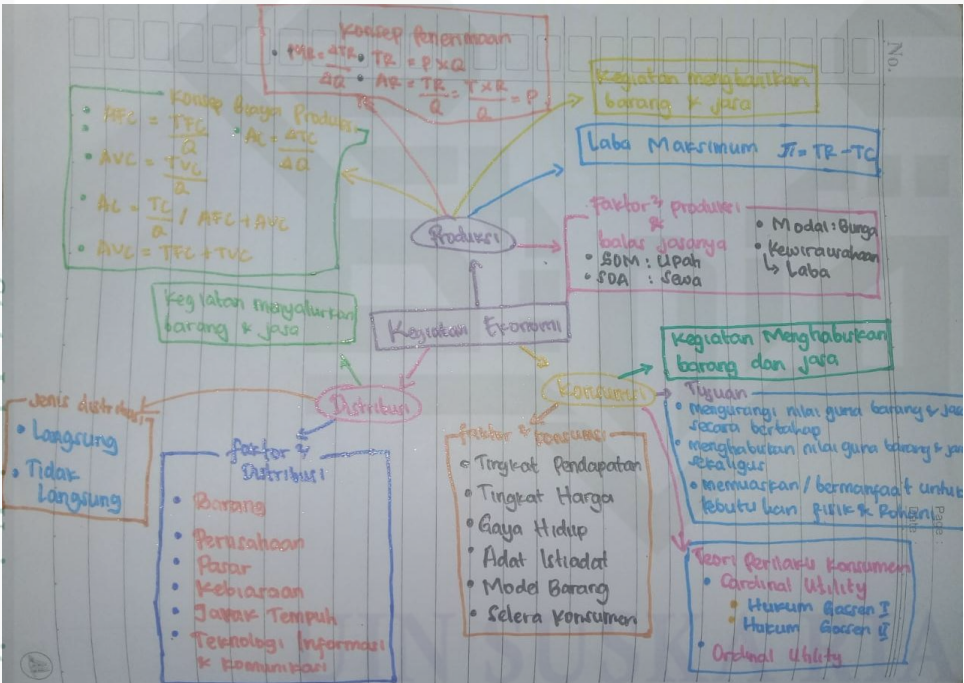 Konsep Penerimaan
• MR = ΔTR/ΔQ
• TR = P x Q
• AR = TR/Q = T x R/Q = P
Konsep Biaya Produksi
• AFC = TFC/Q
• AC = ΔTC/ΔQ
• AVC = TVC/Q
• AC = TC/Q / AFC + AVC
• AVC = TFC + TVC
Kegiatan menghasilkan
barang & jasa
Laba Maksimum π = TR - TC
Produksi
Faktor² produksi
&
balas jasanya
• SDM : Upah
• SDA : Sewa
• Modal : Bunga
• Kewirawahaan
↳ Laba
Kegiatan menyalurkan
barang & jasa
Kegiatan Ekonomi
Kegiatan Menghabiskan
barang dan jasa
Distribusi
Konsumsi
Jenis distribusi
• Langsung
• Tidak
Langsung
faktor²
Distribusi
• Barang
• Perusahaan
• Pasar
• Kebiasaan
• Jarak Tempuh
• Teknologi Informasi
& Komunikasi
faktor² konsumsi
• Tingkat Pendapatan
• Tingkat Harga
• Gaya Hidup
• Adat Istiadat
• Model Barang
• Selera Konsumen
Tujuan
• mengurangi nilai guna barang & jasa
secara bertahap
• menghabiskan nilai guna barang & jasa
sekaligus
• memuaskan / bermanfaat untuk
kebutuhan fisik & Rohani
Teori Perilaku Konsumen
• Cardinal Utility
• Hukum Gossen I
• Hukum Gossen II
• Ordinal Utility
No.
Page :